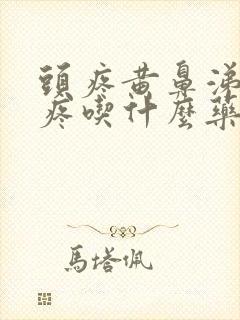 頭疼黃鼻涕
疼喫什麽藥
馬塔佩